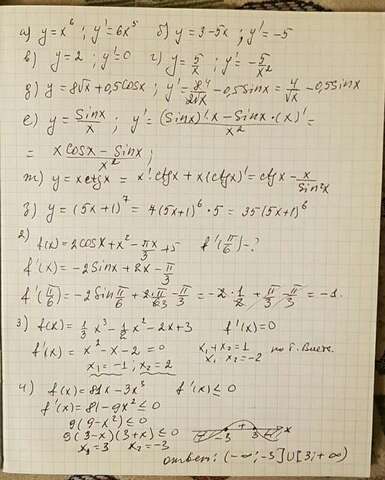 а) y = x⁶ ; y' = 6x⁵ б) y = 3-5x ; y' = -5
в) y = 2 ; y' = 0 г) y = 5/x ; y' = -5/x²
д) y = 8√x + 0,5cosx ; y' = 8⁴/2√x - 0,5sinx = 4/√x - 0,5sinx
е) y = Sinx/x ; y' = (Sinx)'·x - Sinx·(x)'/x² =
= xcosx - Sinx/x² ;
ж) y = xctgx = x'·ctgx + x(ctgx)' = ctgx - x/Sin²x
з) y = (5x+1)⁷ = 7(5x+1)⁶·5 = 35(5x+1)⁶
2) f(x) = 2cosx + x² - πx/3 + 5 f'(π/6) - ?
f'(x) = -2Sinx + 2x - π/3
f'(π/6) = -2Sin π/6 + 2·π/6·3 - π/3 = -2·1/2 + π/3 - π/3 = -1.
3) f(x) = 1/3 x³ - 1/2 x² - 2x + 3 f'(x) = 0
f'(x) = x² - x - 2 = 0 x₁ + x₂ = 1
x₁ x₂ = -2 по т. Виета.
x₁ = -1 ; x₂ = 2
4) f(x) = 81x - 3x³ f'(x) ≤ 0
f'(x) = 81 - 9x² ≤ 0
9(9 - x²) ≤ 0
9(3 - x)(3 + x) ≤ 0
x₁ = 3 x₂ = -3
- -3 + 3 - x
ответ: (-∞; -3] U [3; +∞)